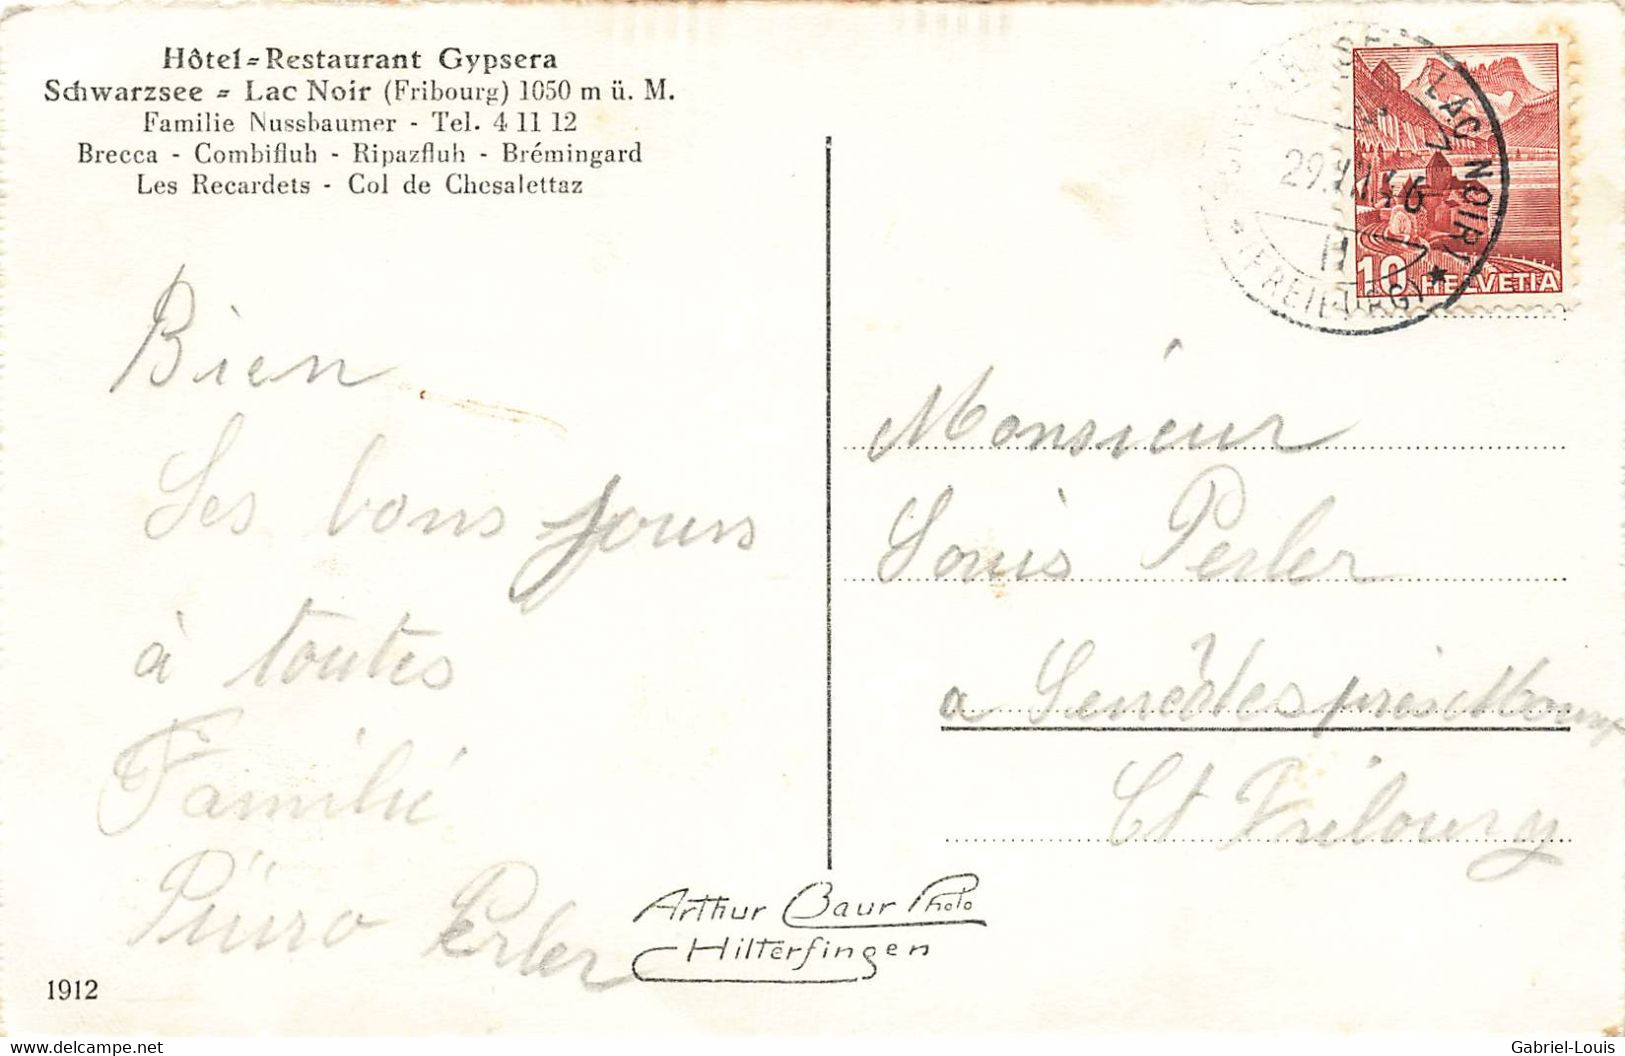 Hôtel=Restaurant Gypsera
Schwarzsee = Lac Noir (Fribourg) 1050 m ü. M.
Familie Nussbaumer - Tel. 4 11 12
Brecca - Combifluh - Ripazfluh - Brémingard
Les Recardets - Col de Chesalettaz
(LAC NOIR)
(FREIBURG)
10 HELVETIA
Bien
Les bons jours
à toutes
Familie
Perler
Monsieur
Louis Perler
a
Ct Fribourg
Arthur Baur Photo
Hilterfingen
1912
www.delcampe.net
Gabriel-Louis